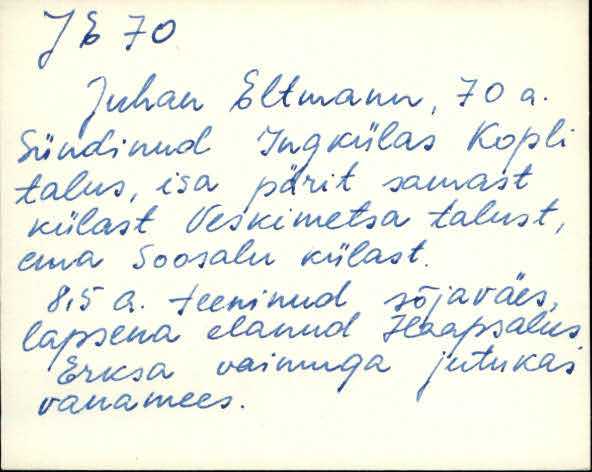 JE 70
Juhan Eltmann, 70 a.
Sündinud Ingkülas Kopli
talus, isa pärit samast
külast Veskimetsa talust,
ema Soosalu külast.
8,5 a. teeninud sõjaväes,
lapsena elanud Haapsalus
Erksa vaimuga jutukas
vanamees.